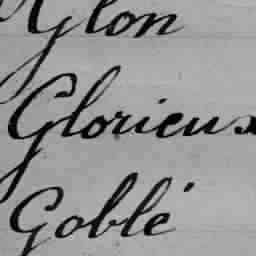 Glon
Glorieux
Goblé